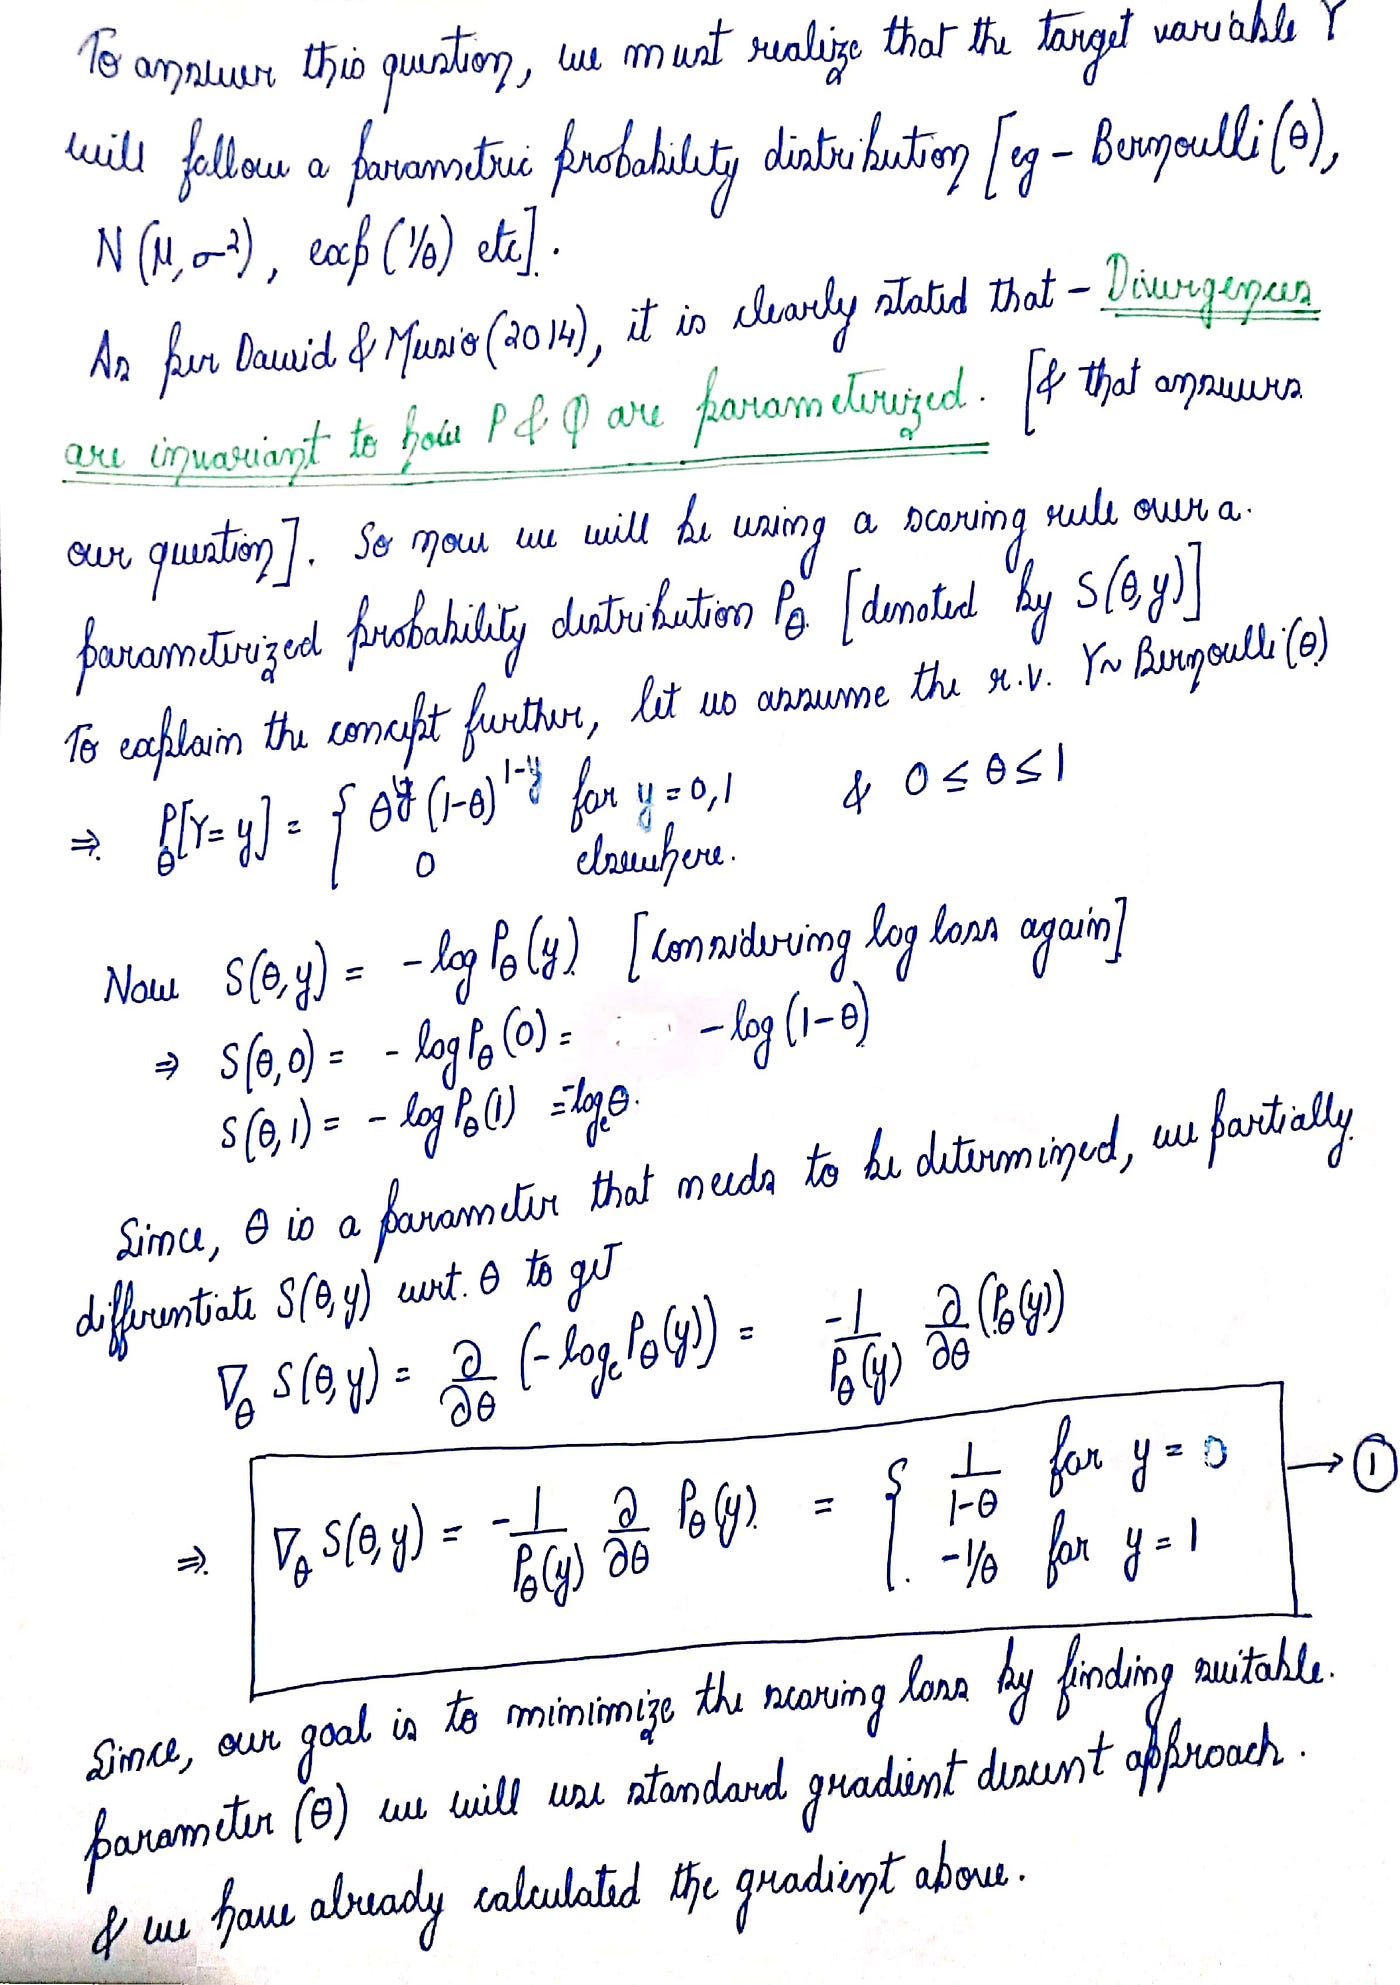 To answer this question, we must realize that the target variable Y
will follow a parametric probability distribution [eg - Bernoulli (θ),
N (μ, σ²), exp (1/θ) etc].
As per Dawid & Musio (2014), it is clearly stated that - Divergences
are invariant to how P & Q are parameterized. [& that answers
our question]. So now we will be using a scoring rule over a
parameterized probability distribution Pθ. [denoted by S(θ,y)]
To explain the concept further, let us assume the r.v. Y~ Bernoulli (θ)
⇒ Pθ[Y=y] = { θ^y (1-θ)^1-y for y = 0,1 & 0 ≤ θ ≤ 1
0 elsewhere.
Now S(θ,y) = - log Pθ(y). [Considering log loss again]
⇒ S(θ,0) = - log Pθ(0) = - log (1-θ)
S(θ,1) = - log Pθ(1) = -logₑθ.
Since, θ is a parameter that needs to be determined, we partially
differentiate S(θ,y) wrt. θ to get
∇θ S(θ,y) = ∂/∂θ (- logₑ Pθ(y)) = -1/Pθ(y) ∂/∂θ (Pθ(y))
⇒ ∇θ S(θ,y) = -1/Pθ(y) ∂/∂θ Pθ(y). = { 1/1-θ for y = 0 → ①
-1/θ for y = 1
Since, our goal is to minimize the scoring loss by finding suitable.
parameter (θ) we will use standard gradient descent approach.
& we have already calculated the gradient above.